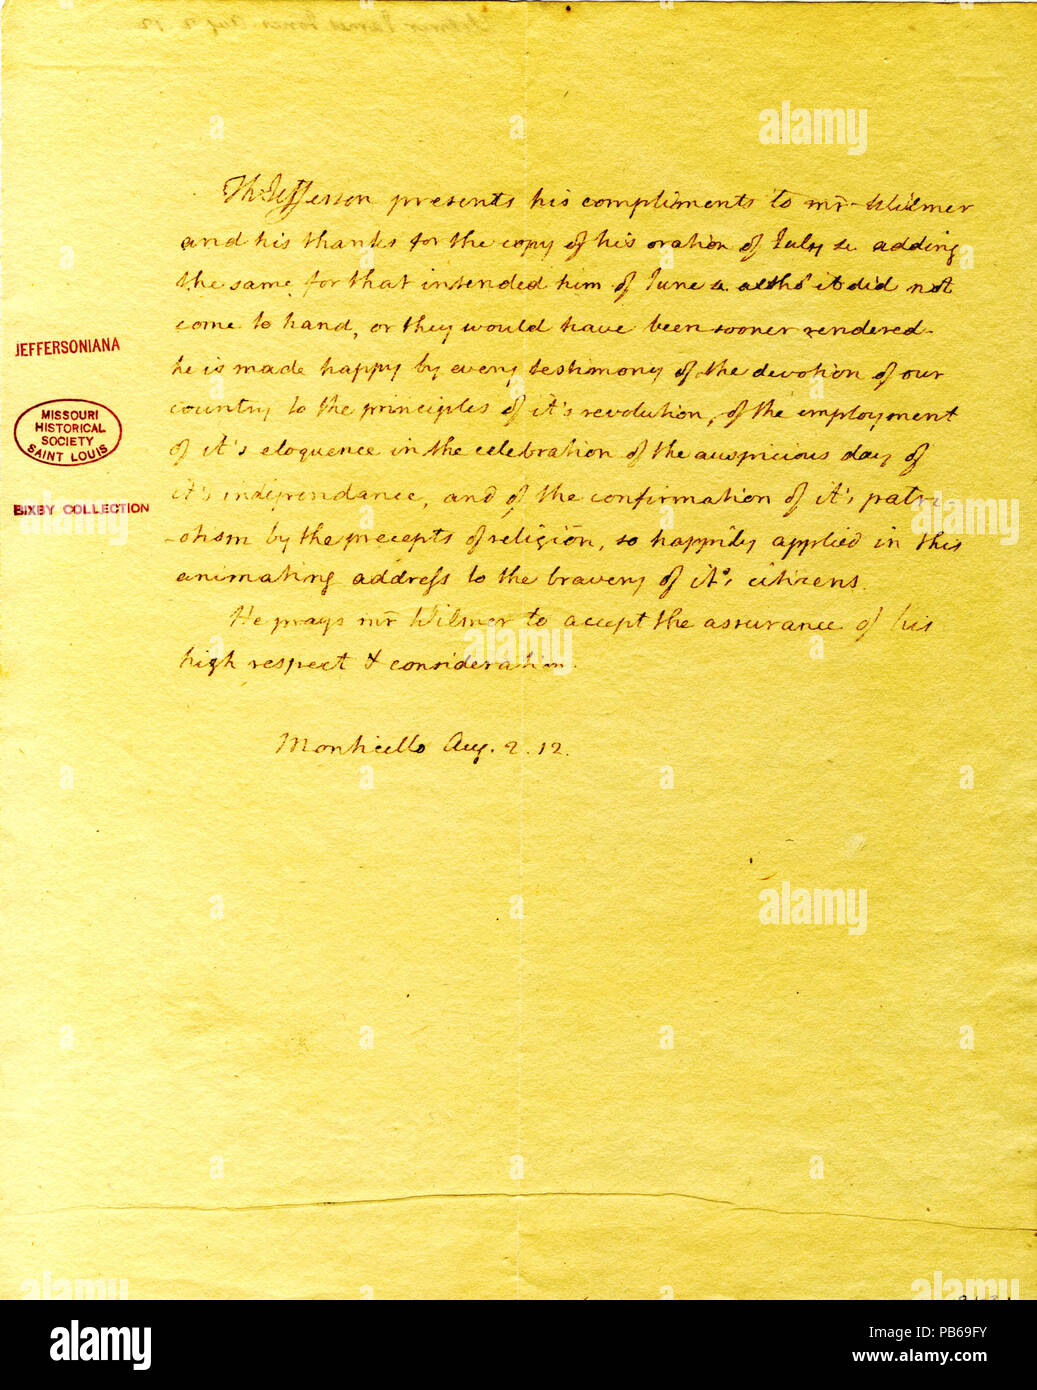 Th: Jefferson presents his compliments to mr Wilmer
and his thanks for the copy of his oration of July 4. adding
the same for that intended him of June 4. altho' it did not
come to hand, or they would have been sooner rendered.
he is made happy by every testimony of the devotion of our
country to the principles of it's revolution, of the employment
of it's eloquence in the celebration of the auspicious day of
it's independance, and of the confirmation of it's patri-
-otism by the precepts of religion, so happily applied in this
animating address to the bravery of it's citizens.
He prays mr Wilmer to accept the assurance of his
high respect & consideration.
Monticello Aug. 2. 12.
JEFFERSONIANA
MISSOURI
HISTORICAL
SOCIETY
SAINT LOUIS
BIXBY COLLECTION
alamy
alamy
Image ID: PB69FY
www.alamy.com